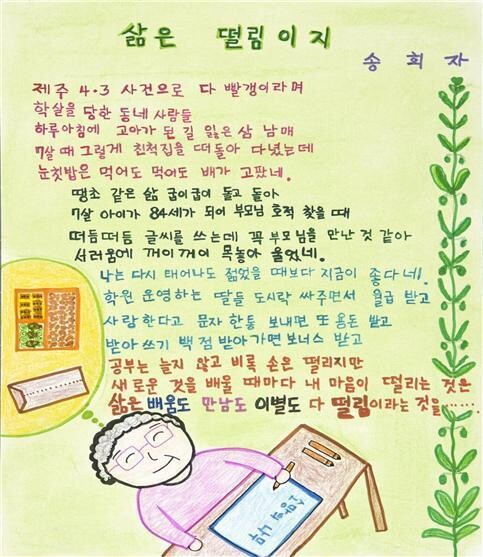 삶은 떨림이지
송희자
제주 4·3 사건으로 다 빨갱이라며
학살을 당한 동네 사람들
하루아침에 고아가 된 길 잃은 삼 남매
7살 때 그렇게 친척집을 떠돌아 다녔는데
눈칫밥은 먹어도 먹어도 배가 고팠네.
땡초 같은 삶 굽이굽이 돌고 돌아
7살 아이가 84세가 되어 부모님 호적 찾을 때
떠듬떠듬 글씨를 쓰는데 꼭 부모님을 만난 것 같아
서러움에 꺼이꺼이 목놓아 울었네.
나는 다시 태어나도 젊었을 때보다 지금이 좋다네!
학원 운영하는 딸들 도시락 싸주면서 월급 받고
사랑한다고 문자 한통 보내면 또 용돈 받고
받아쓰기 백 점 받아가면 보너스 받고
공부는 늘지 않고 비록 손은 떨리지만
새로운 것을 배울 때마다 내 마음이 떨리는 것은
삶은 배움도 만남도 이별도 다 떨림이라는 것을......
소망의 나무